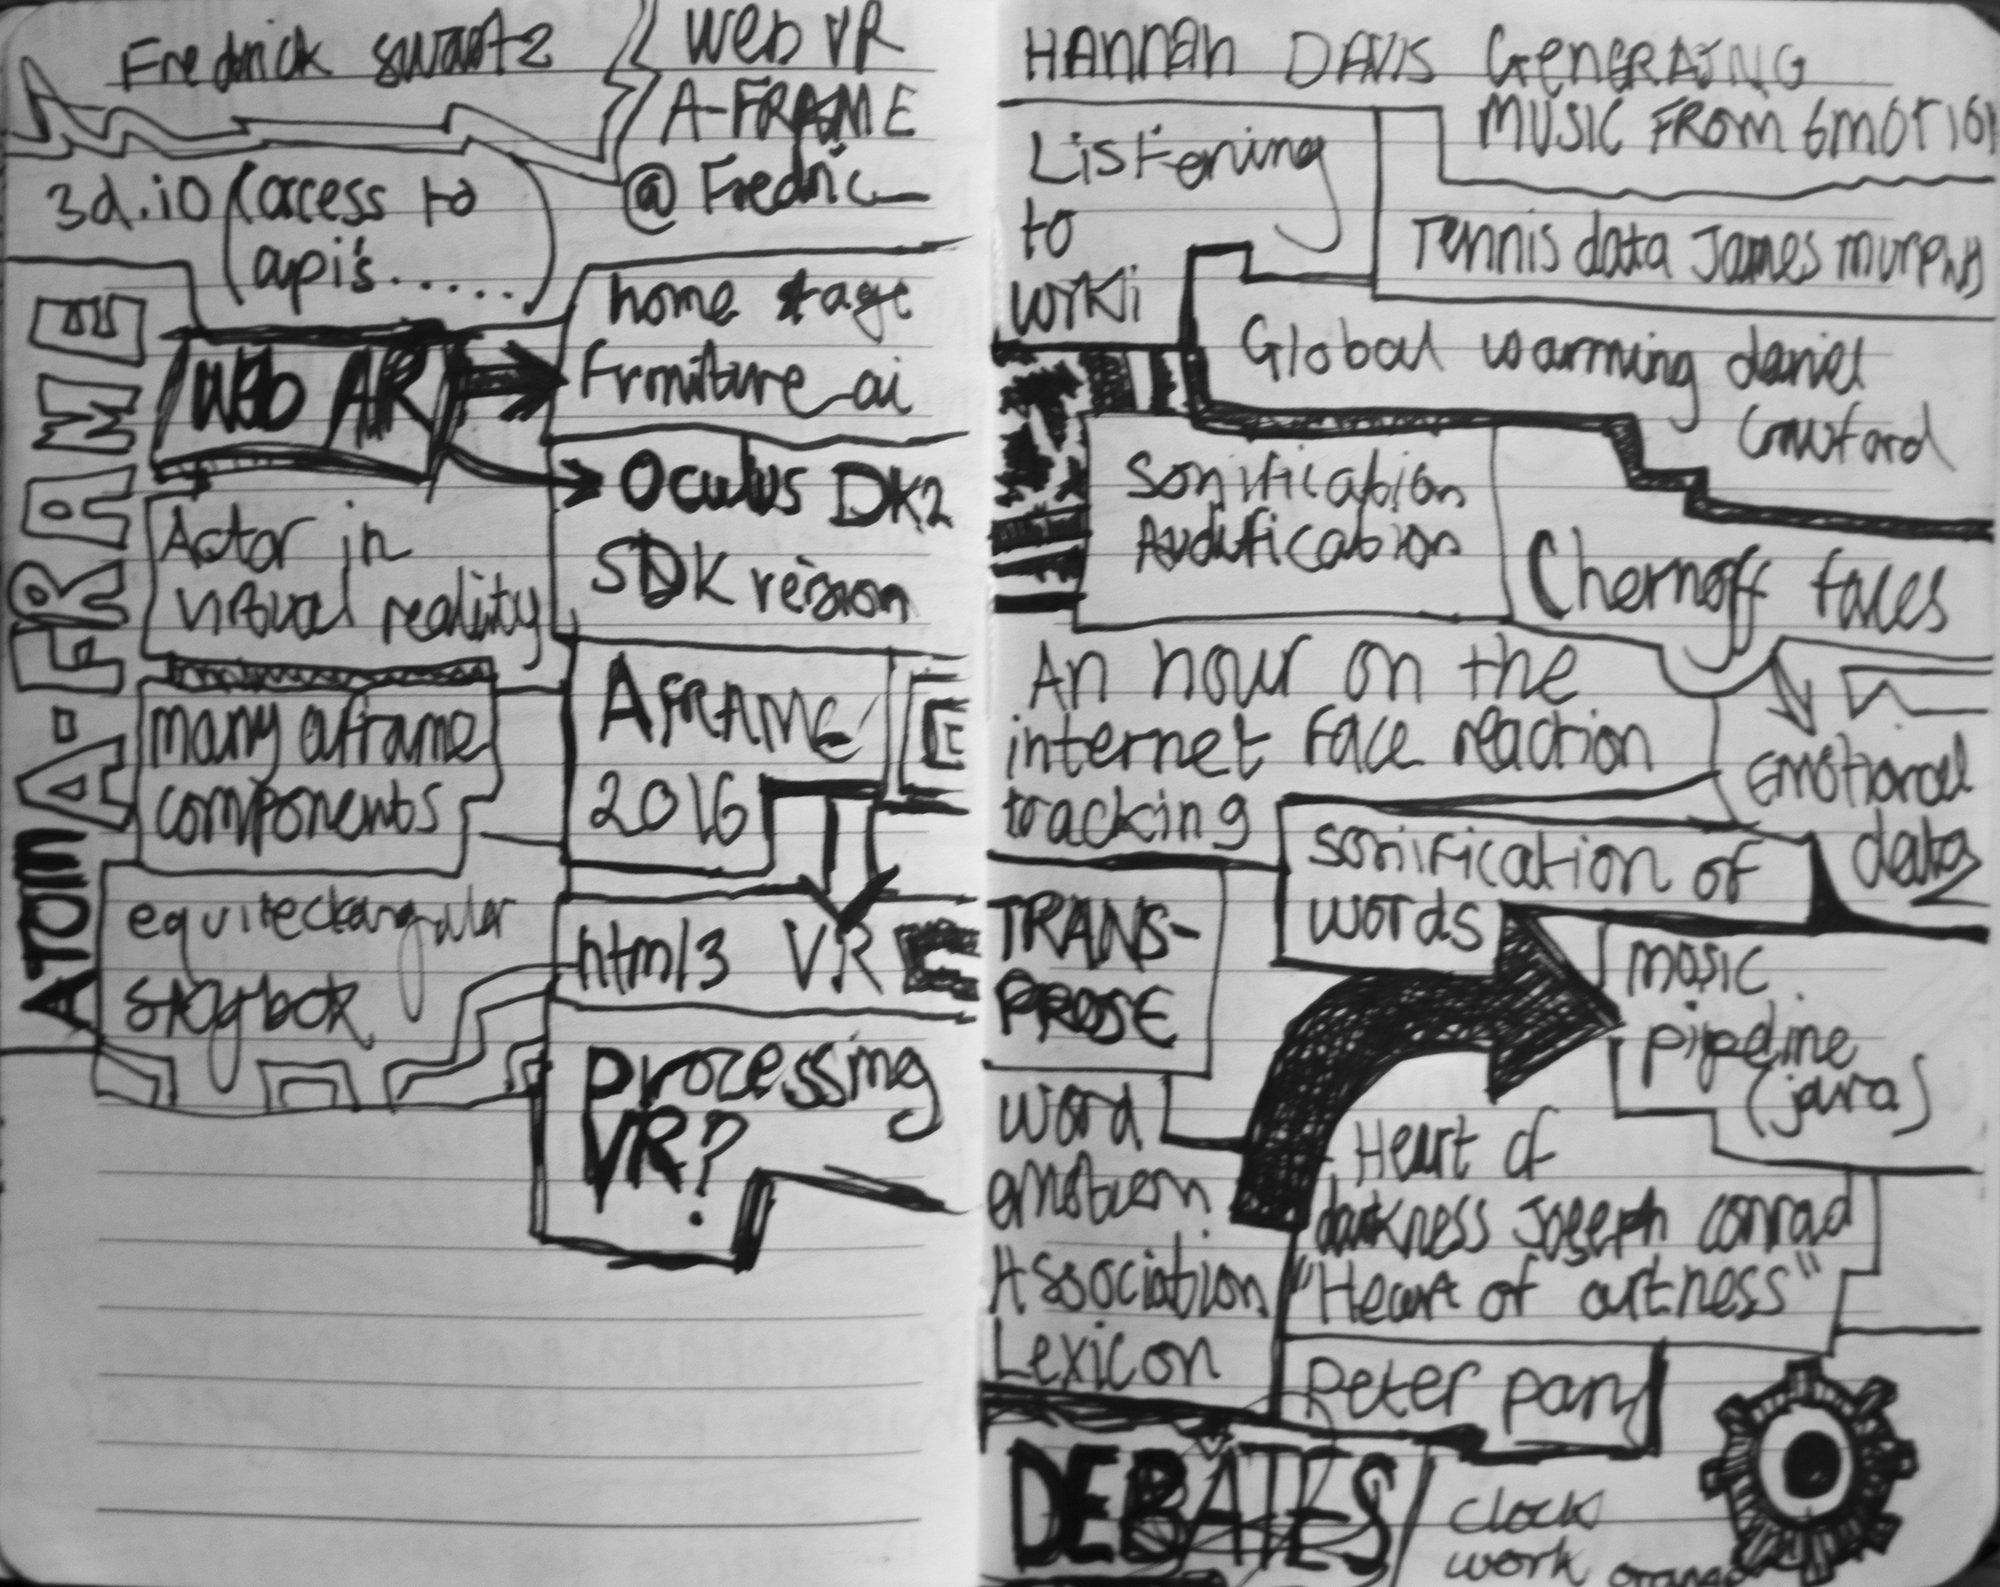 Fredrick swartz
Web VR
A-FRAME
@ Fredric_
3d.io (access to
api's......)
A-FRAME
ATOM
Web AR
home stage
furniture_ai
Oculus DK2
SDK version
Actor in
virtual reality
many aframe
components
AFRAME
2016
E
equirectangular
skybox
html3 VR
processing
VR?
HANNAH DAVIS GENERATING
MUSIC FROM EMOTION
Listening
to
wiki
Tennis data James murphy
Global warming daniel
Crawford
Sonification
Audification
Chernoff faces
An hour on the
internet face reaction
tracking
Emotional
data
sonification of
words
TRANS-
PROSE
music
pipeline
(java)
word
emotion
Association
Lexicon
Heart of
darkness Joseph conrad
"Heart of artness"
Peter pan
DEBATES
clock
work orange